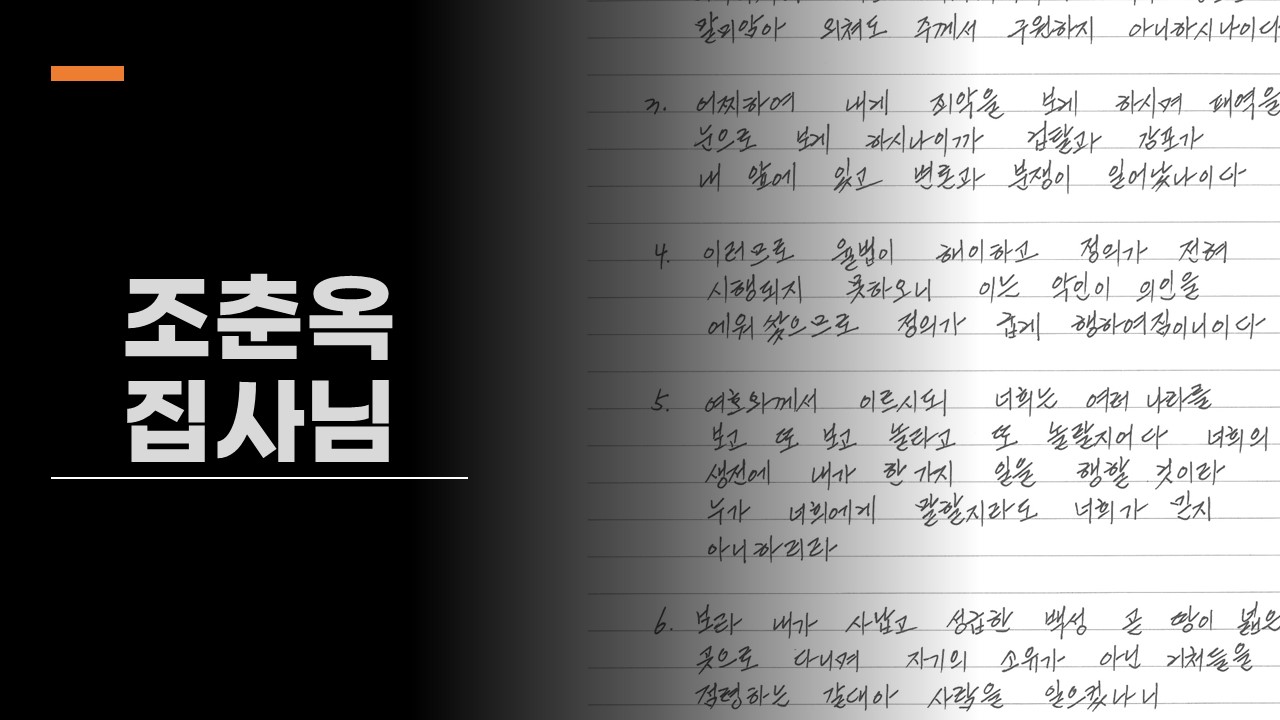 조춘옥
집사님
외쳐도 주께서 구원하지 아니하시나이다
3. 어찌하여 내게 죄악을 보게 하시며 패역을
눈으로 보게 하시나이까 겁탈과 강포가
내 앞에 있고 변론과 분쟁이 일어났나이다
4. 이러므로 율법이 해이하고 정의가 전혀
시행되지 못하오니 이는 악인이 의인을
에워쌌으므로 정의가 굽게 행하여짐이니이다
5. 여호와께서 이르시되 너희는 여러 나라를
보고 또 보고 놀라고 또 놀랄지어다 너희의
생전에 내가 한 가지 일을 행할 것이라
누가 너희에게 말할지라도 너희가 믿지
아니하리라
6. 보라 내가 사납고 성급한 백성 곧 땅이 넓은
곳으로 다니며 자기의 소유가 아닌 거처들을
점령하는 갈대아 사람을 일으켰나니